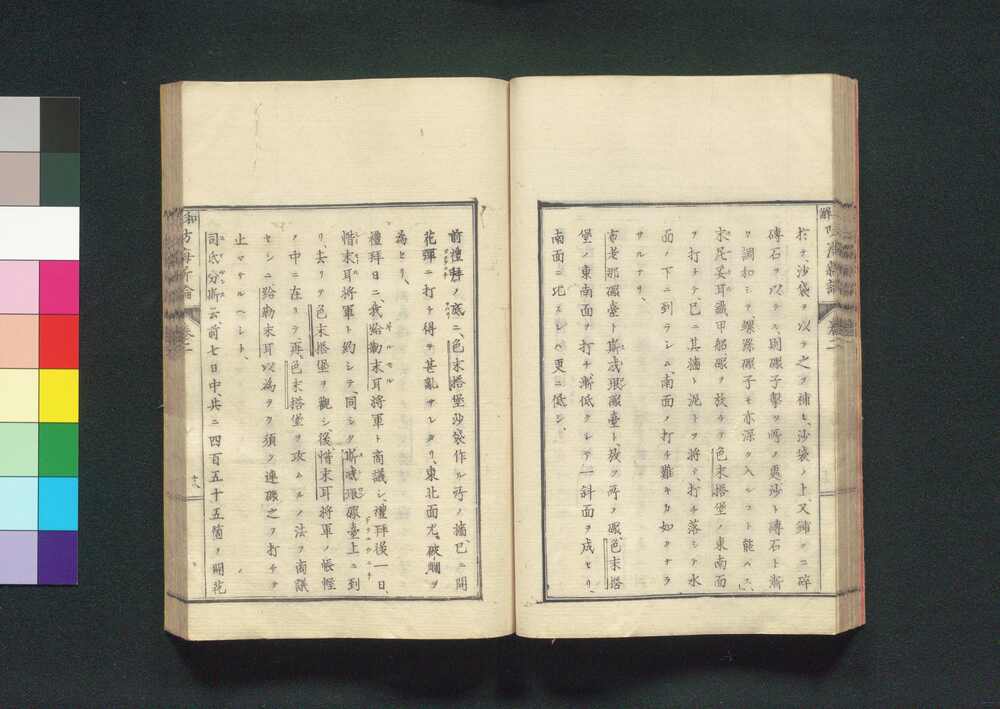 打ツ、沙袋ヲ以テ之ヲ補ヒ、沙袋ノ上、又鋪クニ碎
磚石ヲ以テス、則礮子撃ツ所ノ夷沙ト磚石ト漸
ク調和シテ、螺絲礮子モ亦深ク入ルコト能ハス、
末尼妥耳鐵甲船、礮ヲ放チテ色末搭堡ノ東南面
ヲ打チテ、已ニ其牆ト泥トヲ將テ、打チ落シテ水
面ノ下ニ到ラシム、南面ノ打チ難キカ如クナラ
サルナリ、
布老那礮臺ト斯成琅礮臺ト放ツ所ノ礮、色末搭
堡ノ東南面ヲ打チ、漸低クシテ一斜面ヲ成セリ、
南面ニ比スレハ更ニ低シ、
和
防海新論
卷二
前禮拜ノ底ニ、色末搭堡沙袋作ル所ノ牆、已ニ開
花彈ニ打チ得ラ甚亂サレタリ、東北面尤破爛ヲ
為セリ、
禮拜日ニ、我路勒末耳將軍ト商議シ、禮拜後一日、
惜末耳將軍ト約シテ、同シク斯成琅礮臺上ニ到
リ、去リテ色末搭堡ヲ觀シ後、惜末耳將軍ノ帳幄
ノ中ニ在リテ、再色末搭堡ヲ攻ムルノ法ヲ商議
セシニ、路勒末耳以為ラク須ク連礮之ヲ打チテ
止マサルヘシト、
司底分斯云前七日中共ニ四百五十五箇ヲ開花